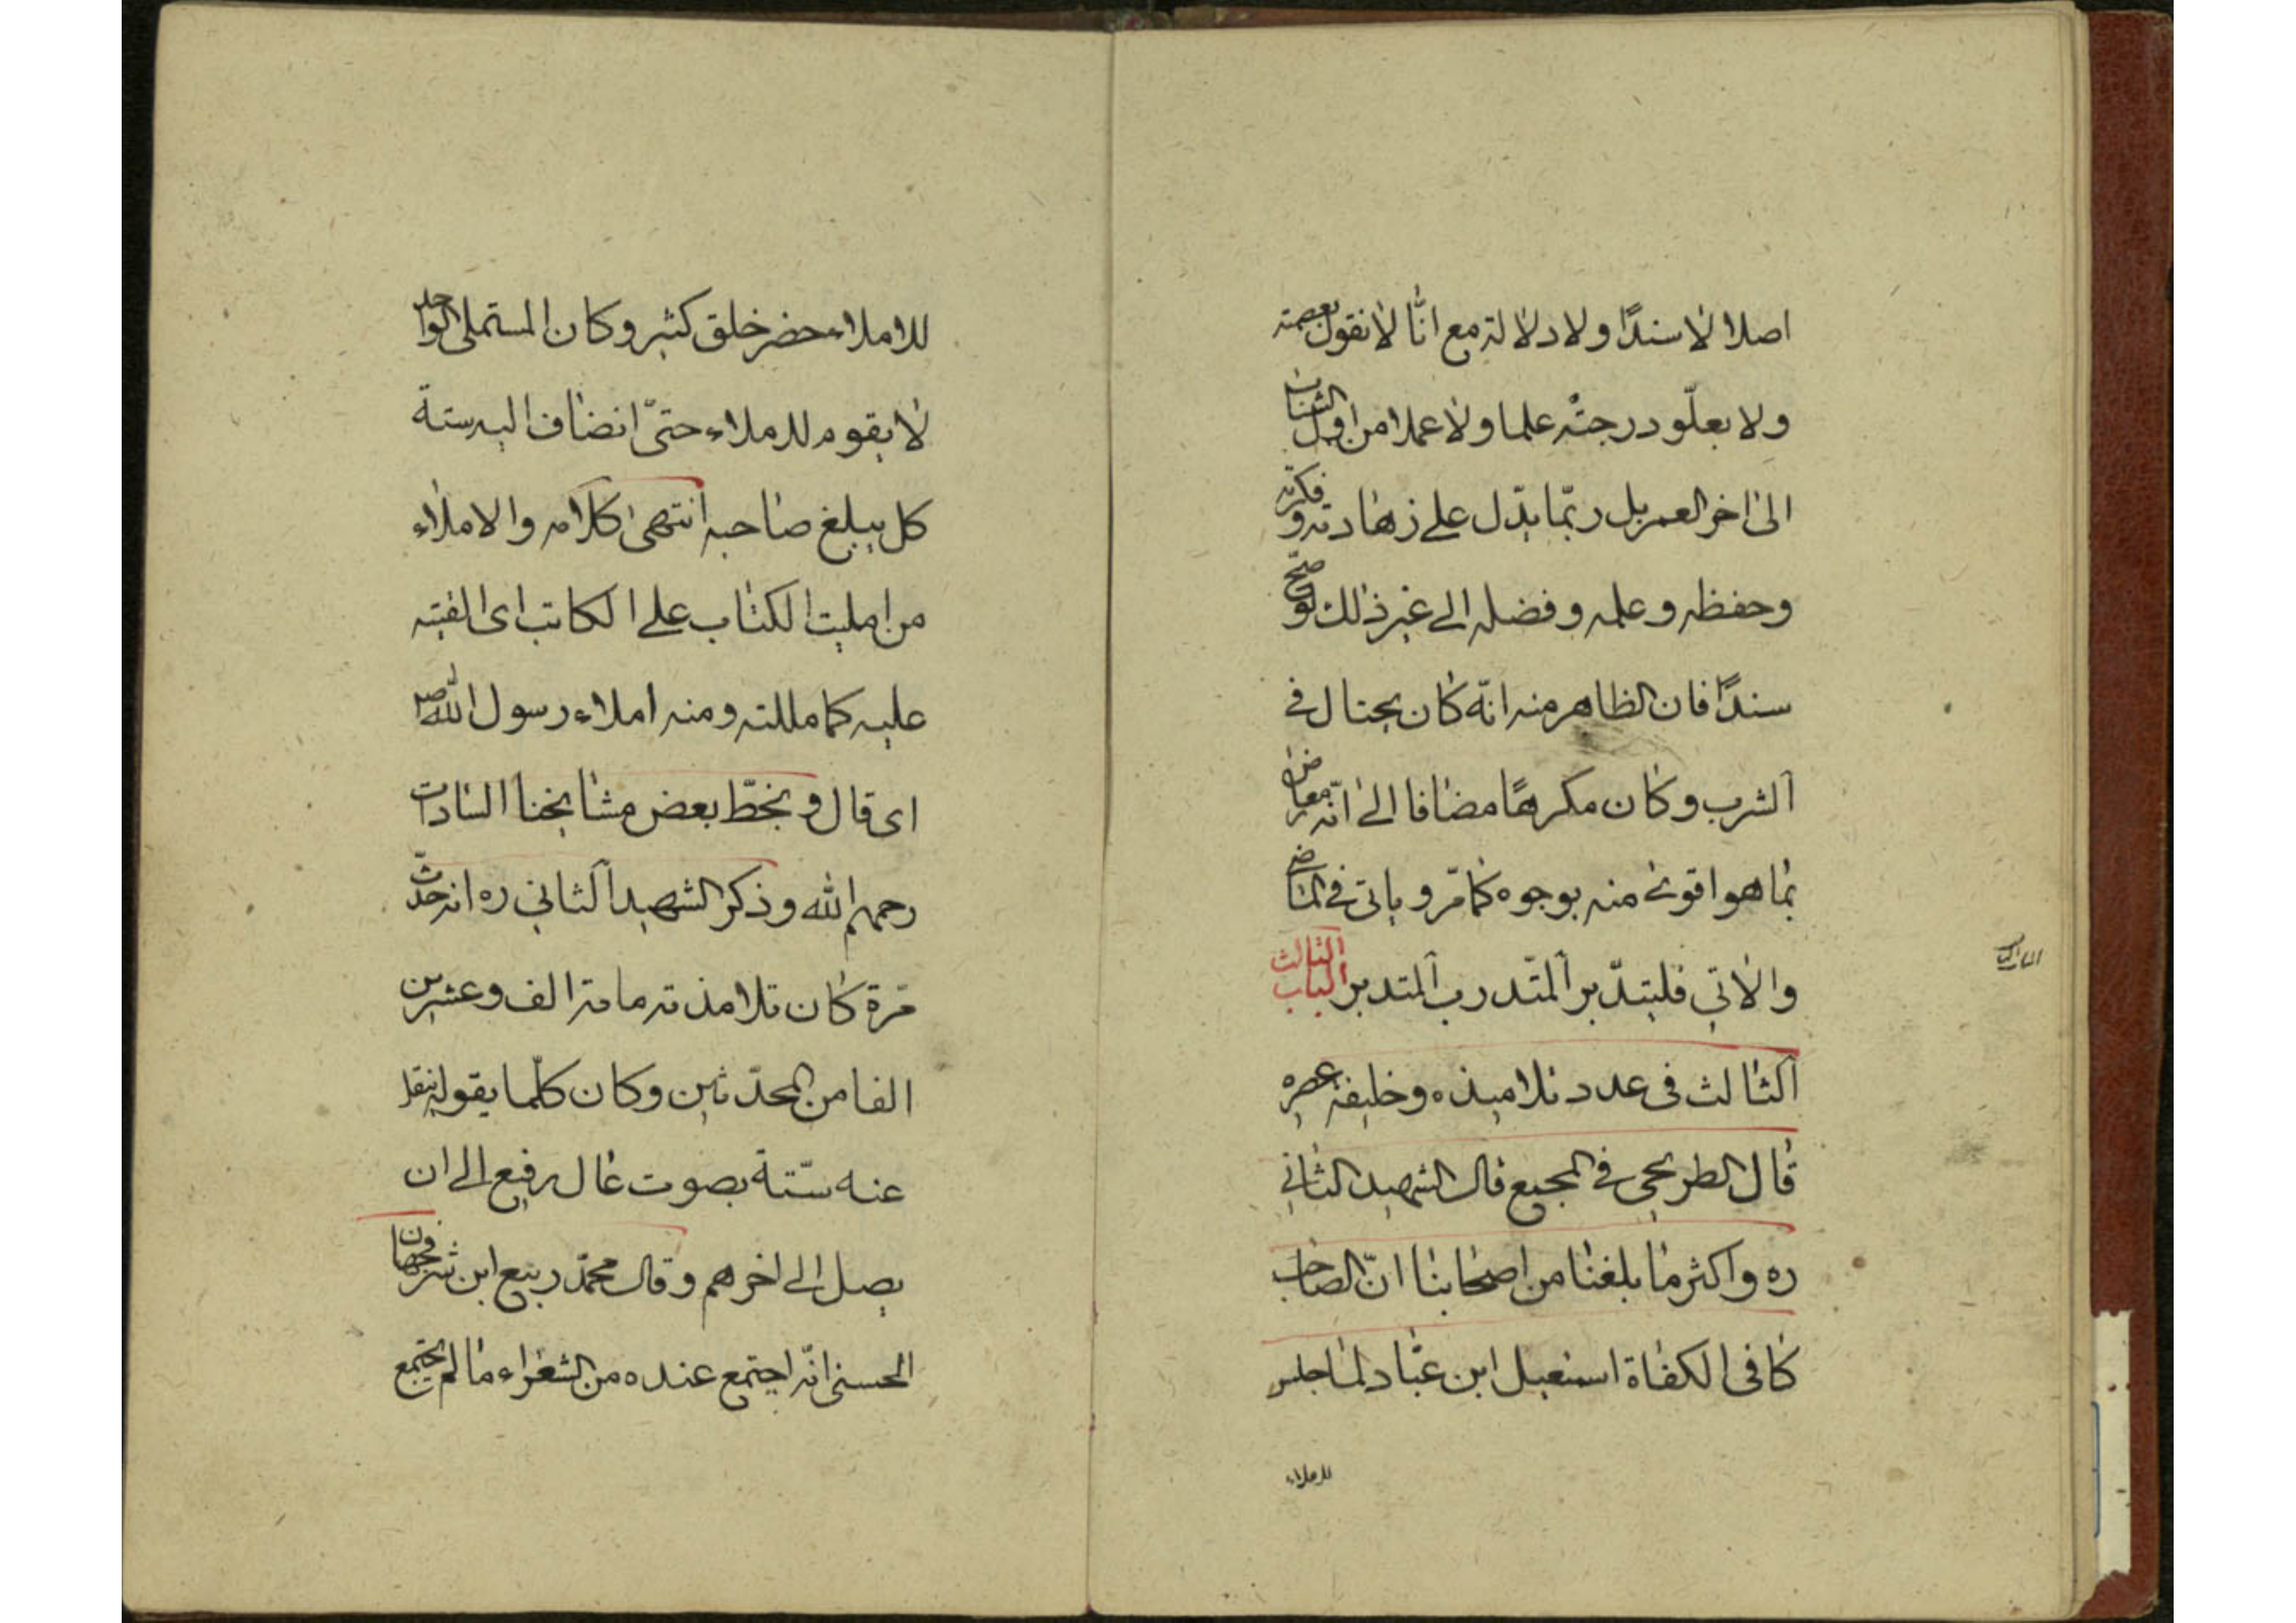 اصلا لا سندًا ولا دلالة مع انّا لا نقول بعصمته
ولا بعلّو درجته علما ولا عملا من اول الشباب
الى اخر العمر بل ربّما يدّل على زهادته و فكرته
وحفظه وعلمه وفضله الى غير ذلك لو صحّ
سندًا فان الظاهر منه انّه كان يحتال فى
الشرب وكان مكرهًا مضافا الى انّه معارض
بما هو اقوى منه بوجوه كما مّر و ياتى فى
والاتي فليتدّبر المتّدرب المتدبر الباب الثالث
الثالث فى عدد تلاميذه وخليفة عصره
قال الطريحى فى المجمع قال الشهيد الثانى
ره واكثر ما بلغنا من اصحابنا انّ الصاحب
كافى الكفاة اسمعيل ابن عبّاد لما جلس
للاملاء
للاملاء حضر خلق كثير وكان المستملى الواحد
لا يقوم للاملاء حتىّ انضاف اليه ستة
كل يبلغ صاحبه انتهى كلامه والاملاء
من امليت الكتاب على الكاتب اى القيته
عليه كامللته ومنه املاء رسول الله ص
اى قال وبخطّ بعض مشايخنا السادات
رحمهم الله وذكر الشهيد الثاني ره انه حدّث
مرة كان تلامذته مائة الف وعشرين
الفا من المحدّثين وكان كلّما يقول ينقل
عنه ستّة بصوت عال رفيع الى ان
يصل الى اخرهم وقال محمّد ربيع ابن شرفجهان
الحسنى انّه اجتمع عنده من الشعراء ما لم يجتمع